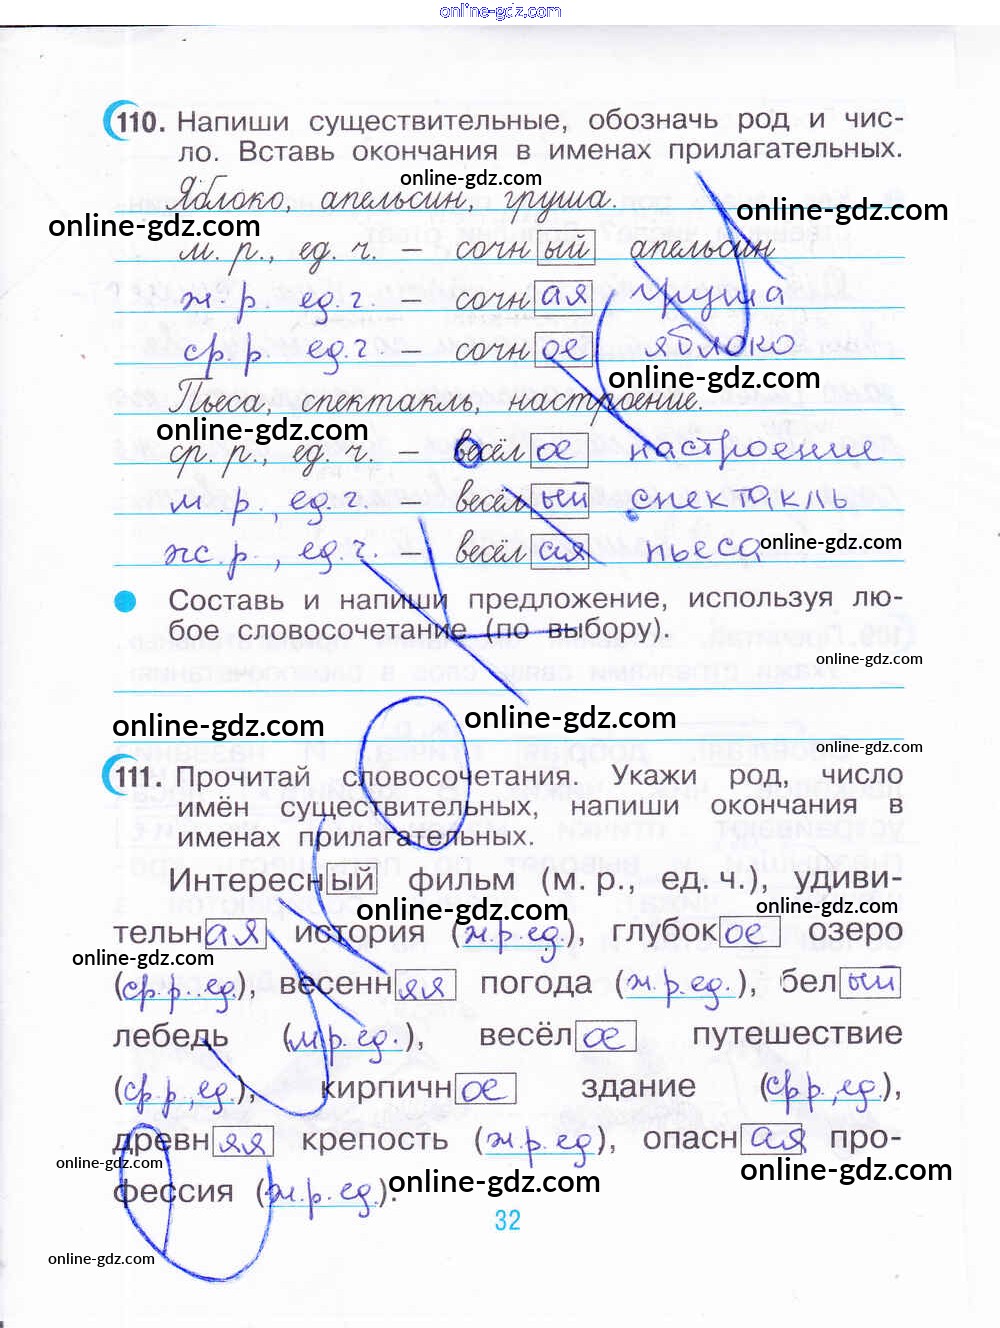 online-gdz.com
110. Напиши существительные, обозначь род и чис-
ло. Вставь окончания в именах прилагательных.
online-gdz.com
Яблоко, апельсин, груша.
online-gdz.com online-gdz.com
м. р., ед. ч. – сочный апельсин
ж. р. ед. ч. – сочная груша
ср. р. ед. ч – сочное яблоко
online-gdz.com
Пьеса, спектакль, настроение.
online-gdz.com
ср. р., ед. ч. – весёлое настроение
м. р., ед. ч. – весёлый спектакль
ж. р., ед. ч. – весёлая пьеса
online-gdz.com
Составь и напиши предложение, используя лю-
бое словосочетание (по выбору).
online-gdz.com
online-gdz.com online-gdz.com
online-gdz.com
111. Прочитай словосочетания. Укажи род, число
имён существительных, напиши окончания в
именах прилагательных.
Интересный фильм (м. р., ед. ч.), удиви-
online-gdz.com online-gdz.com
тельная история (ж. р. ед.), глубокое озеро
online-gdz.com online-gdz.com
(ср. р. ед.), весенняя погода (ж. р. ед.), белый
лебедь (м. р. ед.), весёлое путешествие
(ср. р., ед.), кирпичное здание (ср р., ед.),
древняя крепость (ж. р. ед), опасная про-
online-gdz.com online-gdz.com
фессия (ж. р. ед.).
online-gdz.com
32
online-gdz.com